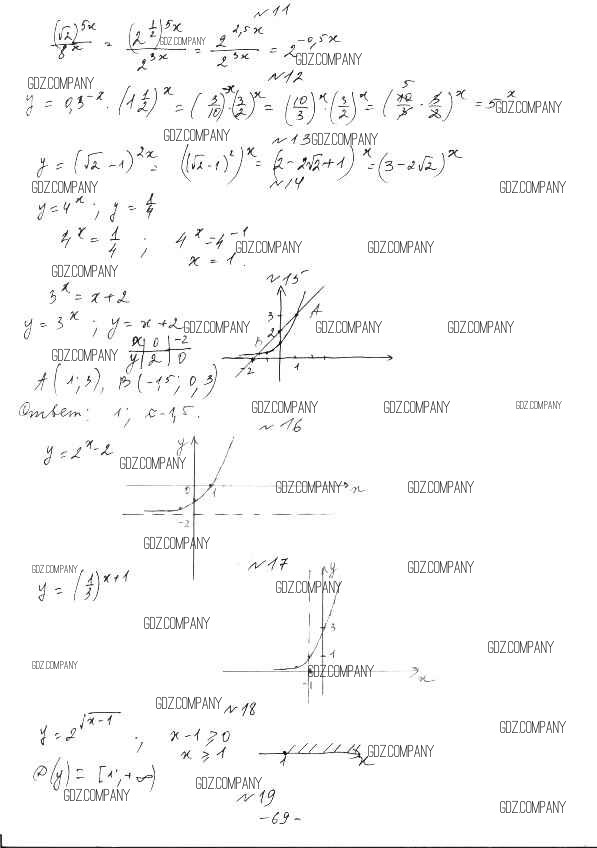 №11
(√2)^5x / 8^x = (2^(1/2))^5x / 2^3x = 2^2,5x / 2^3x = 2^-0,5x
GDZ.COMPANY GDZ.COMPANY
№12
GDZ.COMPANY
y = 0,3^-x · (1 1/2)^x = (3/10)^-x · (3/2)^x = (10/3)^x · (3/2)^x = (10/3 · 3/2)^x = 5^x
5
GDZ.COMPANY
GDZ.COMPANY №13 GDZ.COMPANY
y = (√2 - 1)^2x = ((√2 - 1)^2)^x = (2 - 2√2 + 1)^x = (3 - 2√2)^x
GDZ.COMPANY №14 GDZ.COMPANY
y = 4^x ; y = 1/4
4^x = 1/4 ; 4^x = 4^-1
GDZ.COMPANY GDZ.COMPANY
x = 1.
GDZ.COMPANY №15
3^x = x + 2
y = 3^x ; y = x + 2 GDZ.COMPANY GDZ.COMPANY GDZ.COMPANY
3 A
2
B
-2 1
GDZ.COMPANY x 0 -2
y 2 0
A(1; 3), B(-1,5; 0,3)
Ответ: 1; ≈-1,5.
GDZ.COMPANY GDZ.COMPANY GDZ.COMPANY
№16
y = 2^x - 2
y
GDZ.COMPANY
0 1 x
GDZ.COMPANY GDZ.COMPANY
-2
GDZ.COMPANY
№17
GDZ.COMPANY GDZ.COMPANY
y = (1/3)^x+1
y
GDZ.COMPANY
GDZ.COMPANY
3
GDZ.COMPANY
1
GDZ.COMPANY GDZ.COMPANY
-1 x
GDZ.COMPANY №18
y = 2^√(x-1) ; x - 1 ≥ 0
GDZ.COMPANY
x ≥ 1
1 x
GDZ.COMPANY
D(y) = [1; +∞)
GDZ.COMPANY GDZ.COMPANY
№19
GDZ.COMPANY
-69-